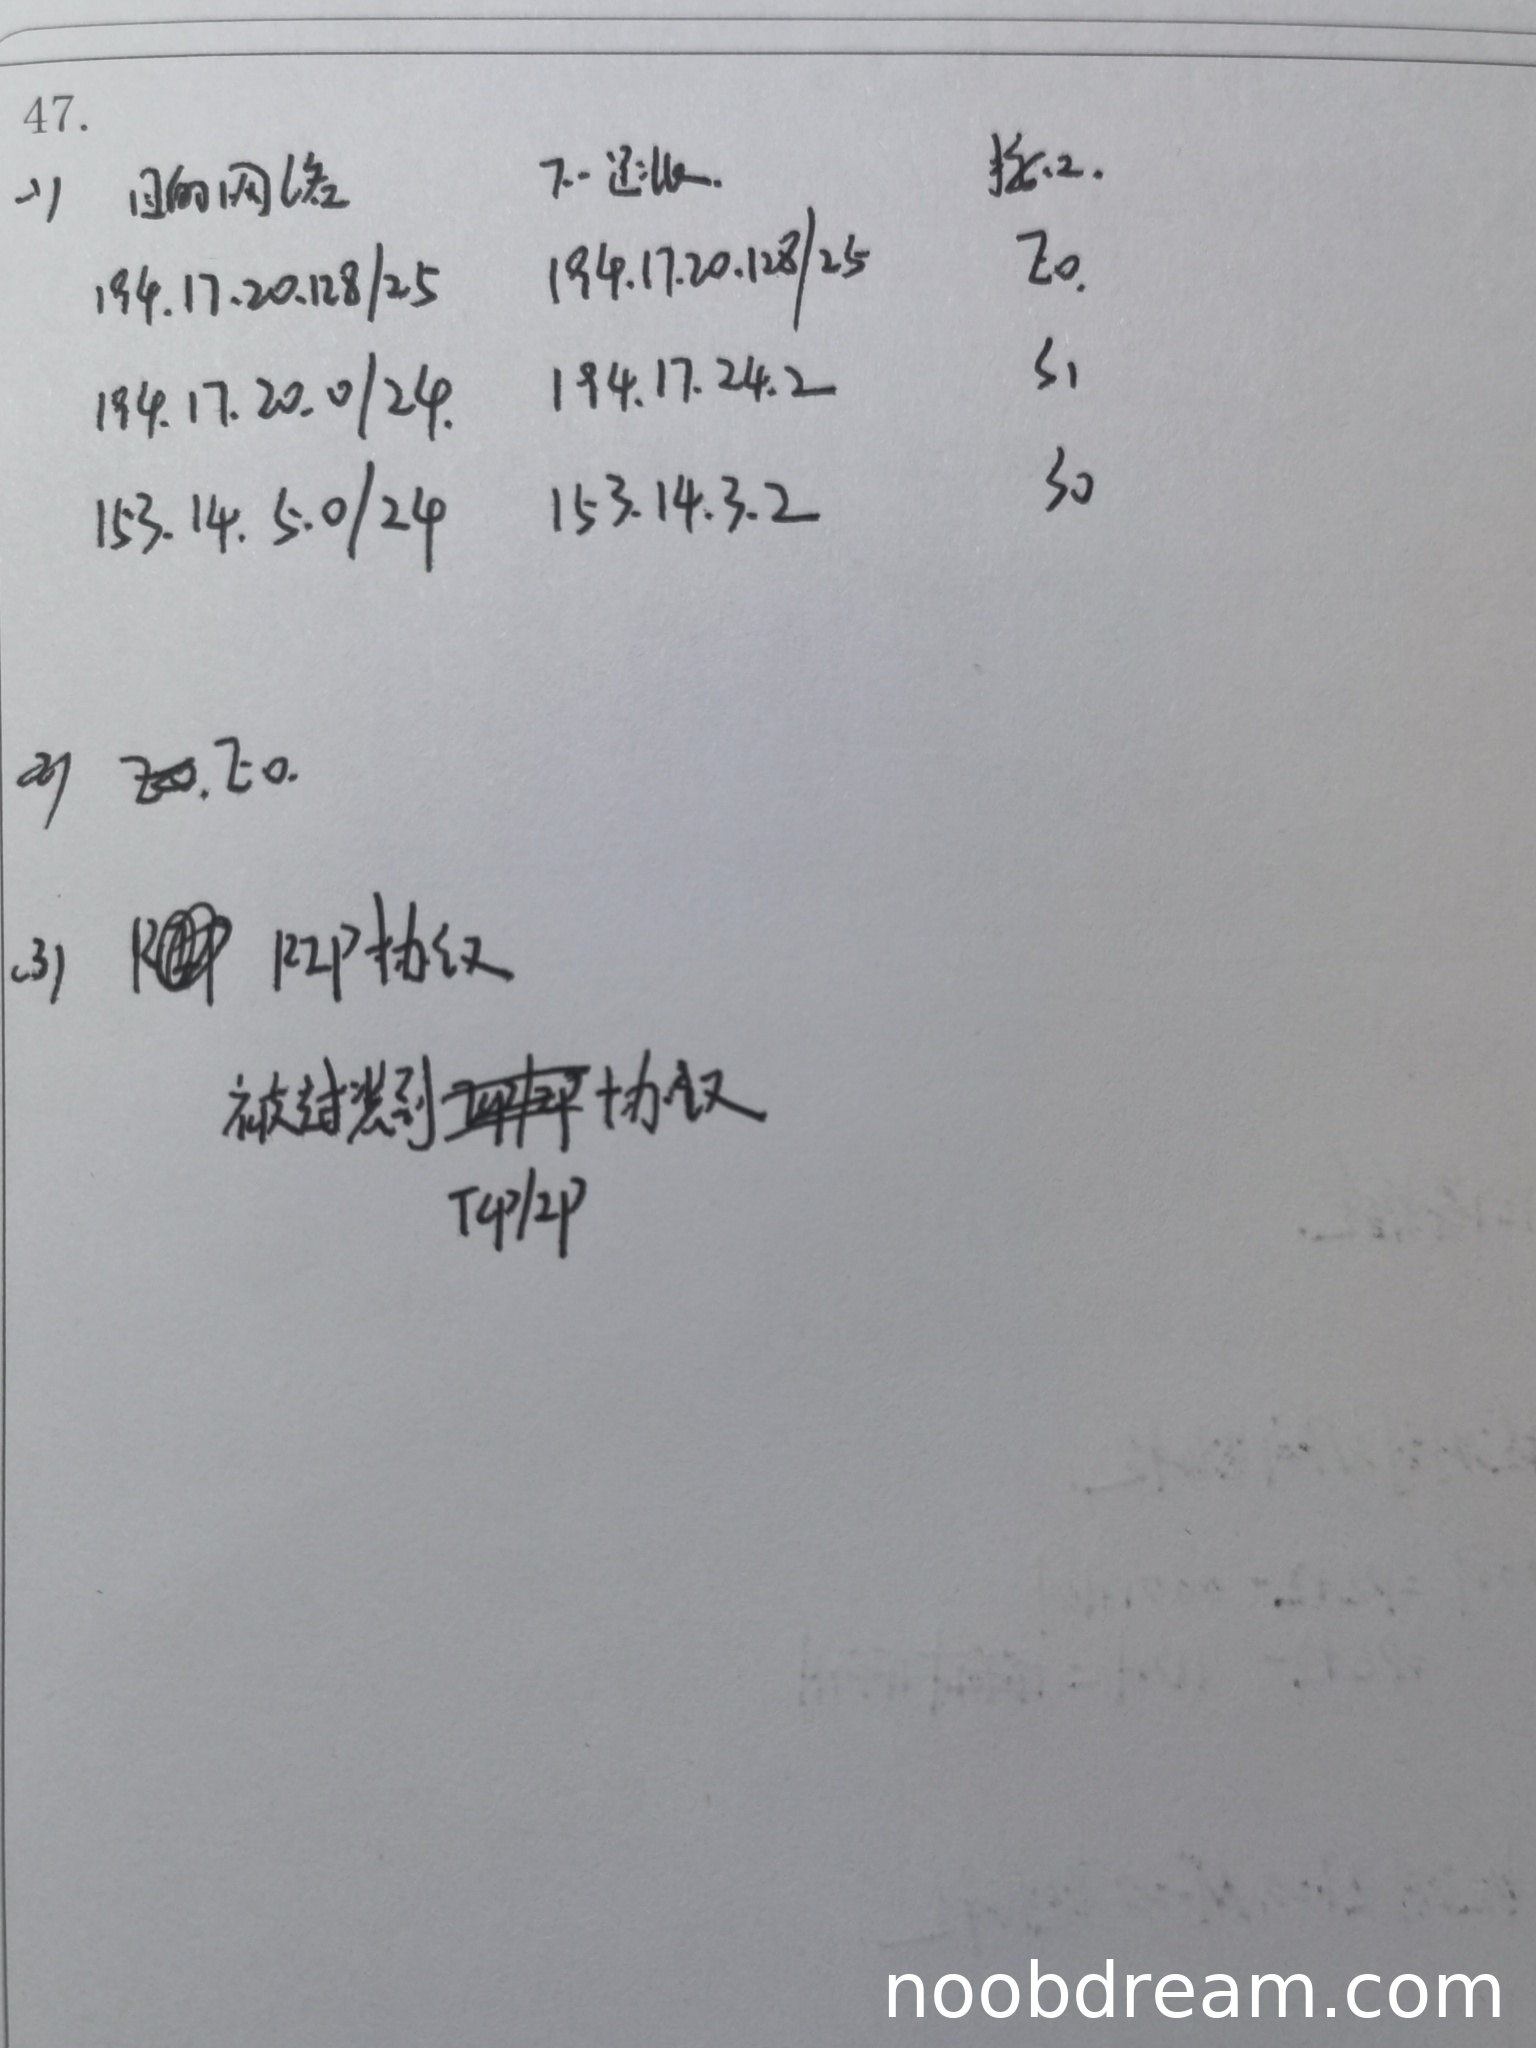 47.
(1) 目的网络 下一跳 接口.
194.17.20.128/25 194.17.20.128/25 E0.
194.17.20.0/24. 194.17.24.2 S1
153.14.5.0/24 153.14.3.2 S0
(2) E0.
(3) RIP协议
被封装到 协议
TCP/IP
noobdream.com